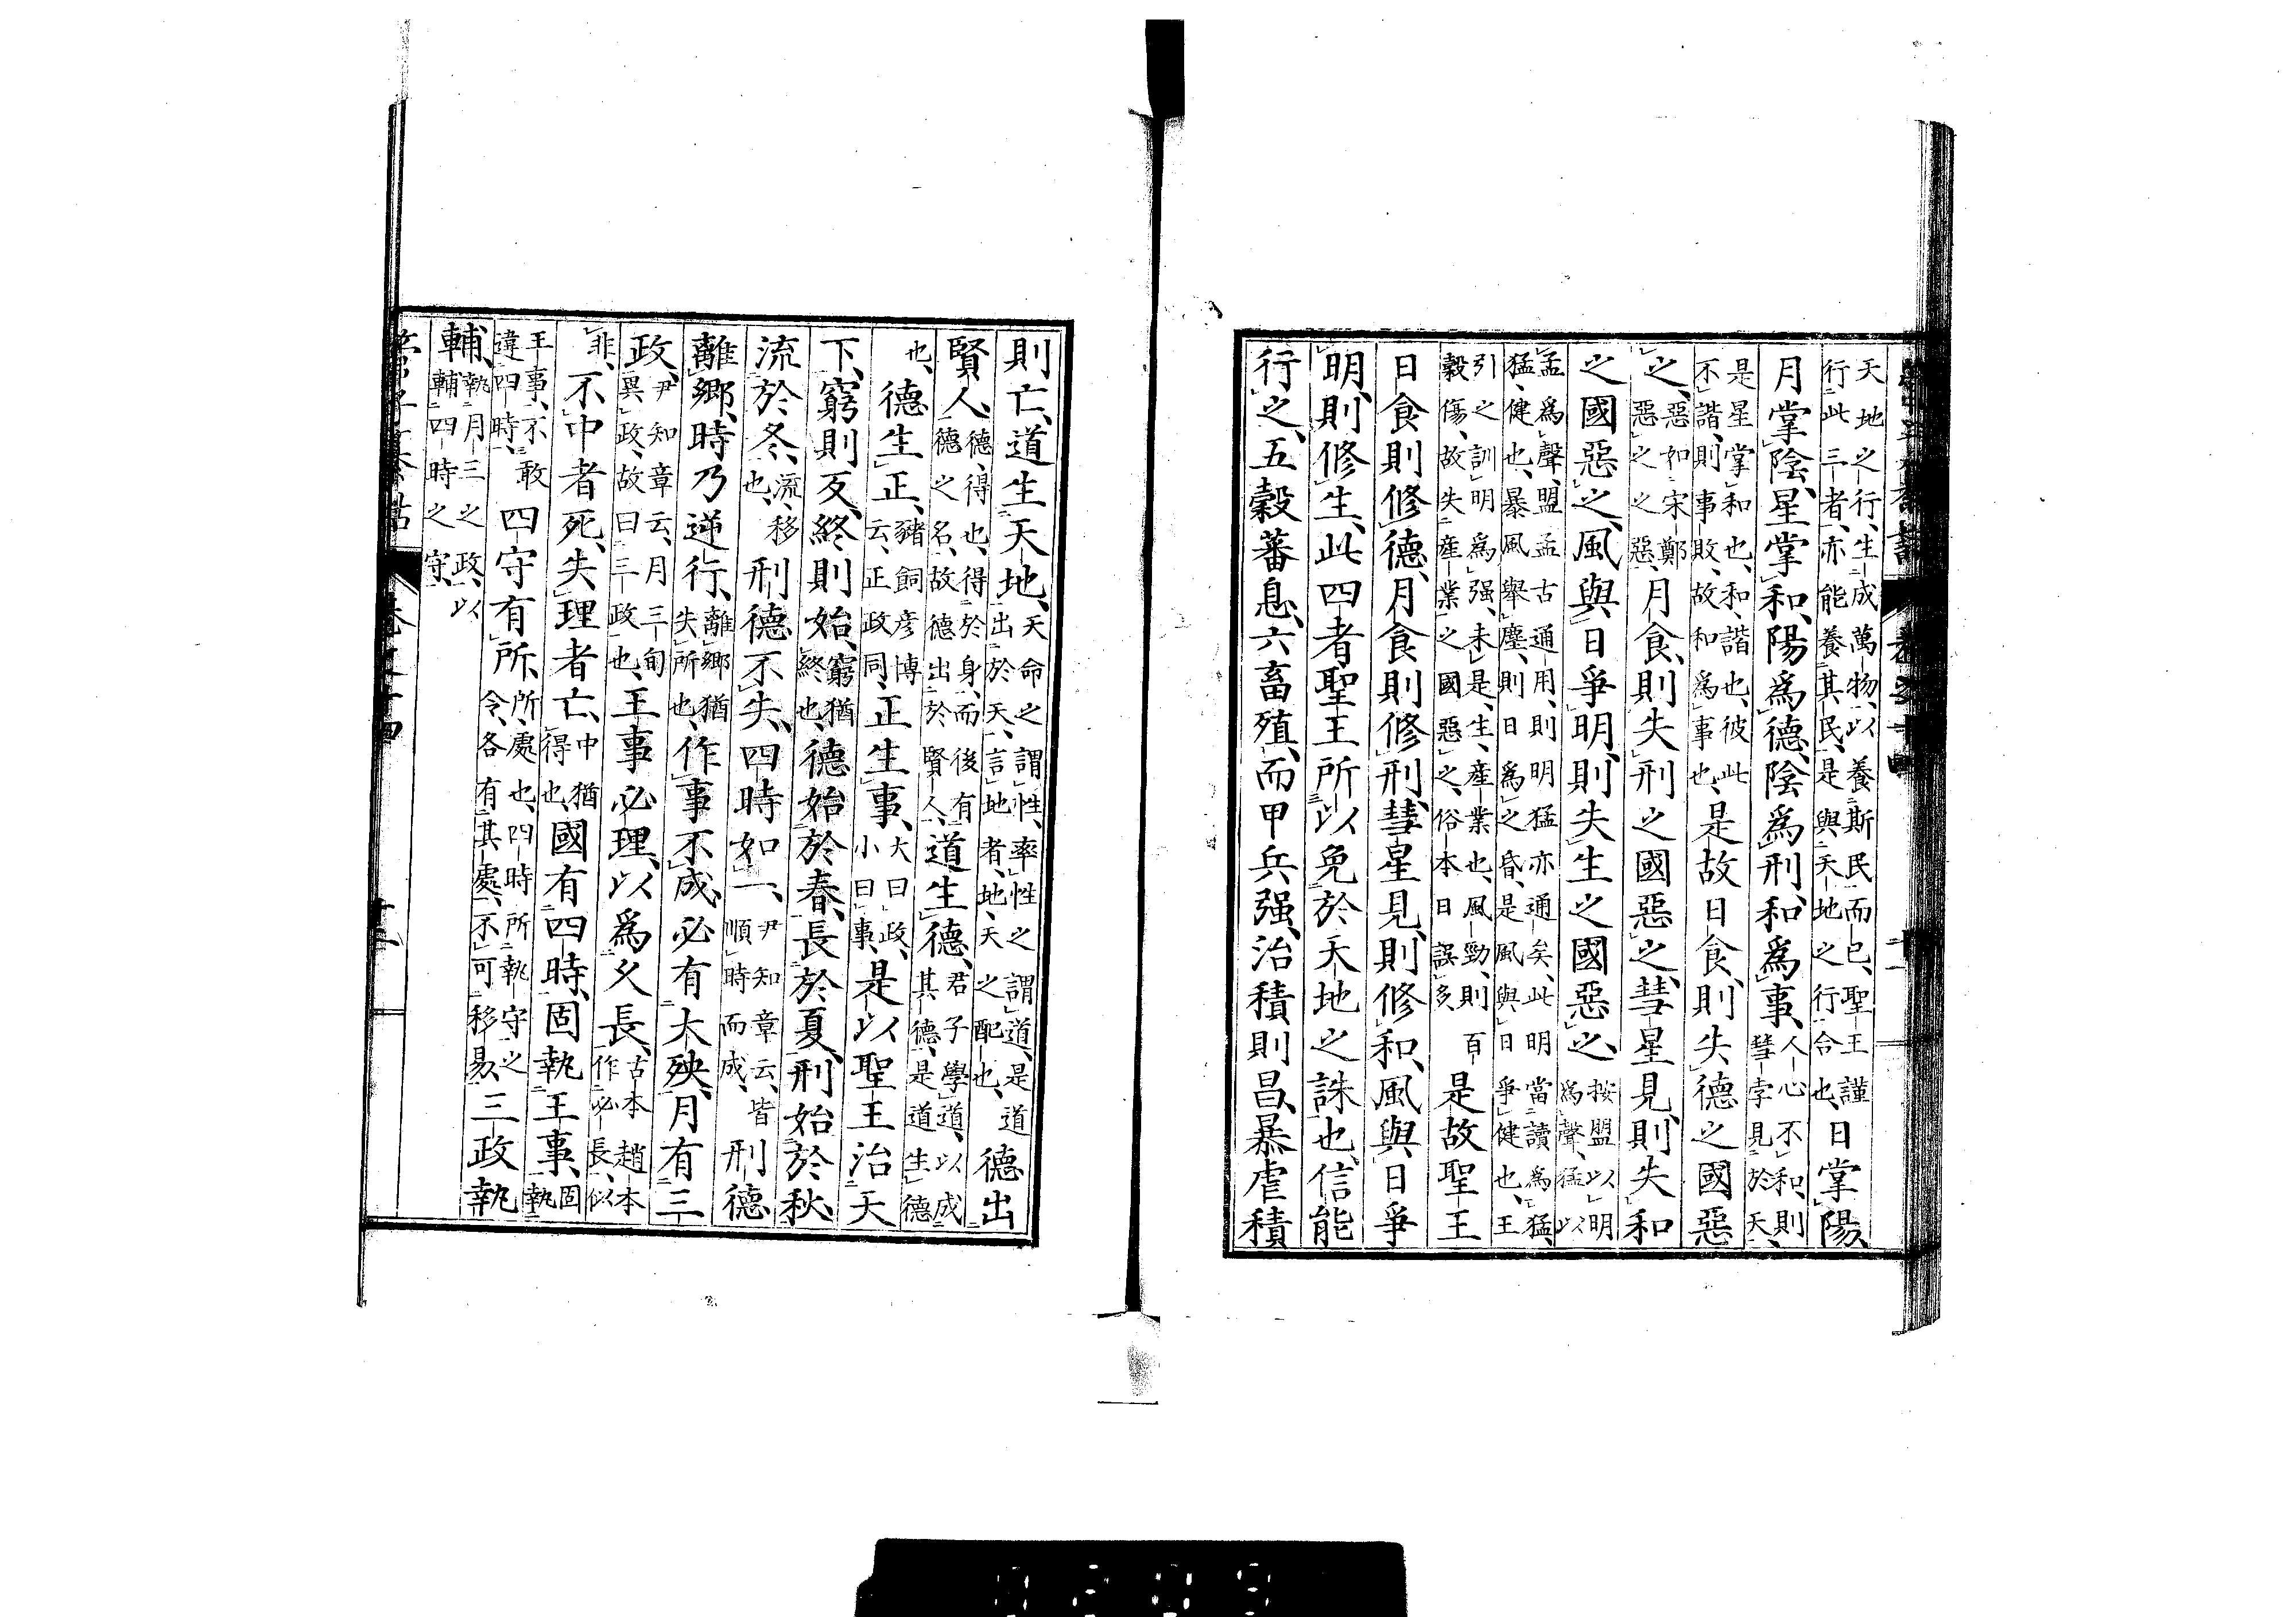 天地之行、生成萬物、以養斯民而已、聖王謹
行此三者、亦能養其民、是與天地之行合也、日掌陽、
月掌陰、星掌和、陽爲德、陰爲刑、和爲事、人心不和、則
彗孛見於天、
是星掌和也、和、諧也、彼此
不諧、則事敗、故和爲事也、是故日食、則失德之國惡
之、惡如宋鄭
惡之之惡、月食、則失刑之國惡之、彗星見、則失和
之國惡之、風與日爭明、則失生之國惡之、按盟以明
爲聲、猛以
孟爲聲、盟孟古通用、則明猛亦通矣、此明當讀爲猛、
猛、健也、暴風舉塵、則日爲之昏、是風與日爭健也、王
引之訓明爲强、未是、生、產業也、風勁、則百
穀傷、故失產業之國惡之、俗本日誤多是故聖王
日食則修德、月食則修刑、彗星見、則修和、風與日爭
明、則修生、此四者聖王所以免於天地之誅也、信能
行之、五穀蕃息、六畜殖、而甲兵强、治積則昌、暴虐積
則亡、道生天地、天命之謂性、率性之謂道、是道
出於天、言地者、地、天之配也、德出
賢人、德、得也、得於身、而後有
德之名、故德出於賢人、道生德、君子學道、以成
其德、是道生德
也、德生正、豬飼彥博
云、正政同、正生事、大曰政、
小曰事、是以聖王治天
下、窮則反、終則始、窮猶
終也、德始於春、長於夏、刑始於秋、
流於冬、流、移
也、刑德不失、四時如一、尹知章云、皆
順時而成、刑德
離鄉、時乃逆行、離鄉猶
失所也、作事不成、必有大殃、月有三
政、尹知章云、月三旬
異政、故曰三政也、王事必理、以爲久長、古本趙本
作必長、似
非、不中者死、失理者亡、中猶
得也、國有四時、固執王事、固
執
王事、不敢
違四時、四守有所、所、處也、四時所執守之
令、各有其處、不可移易、三政執
輔、執月三之政、以
輔四時之守、